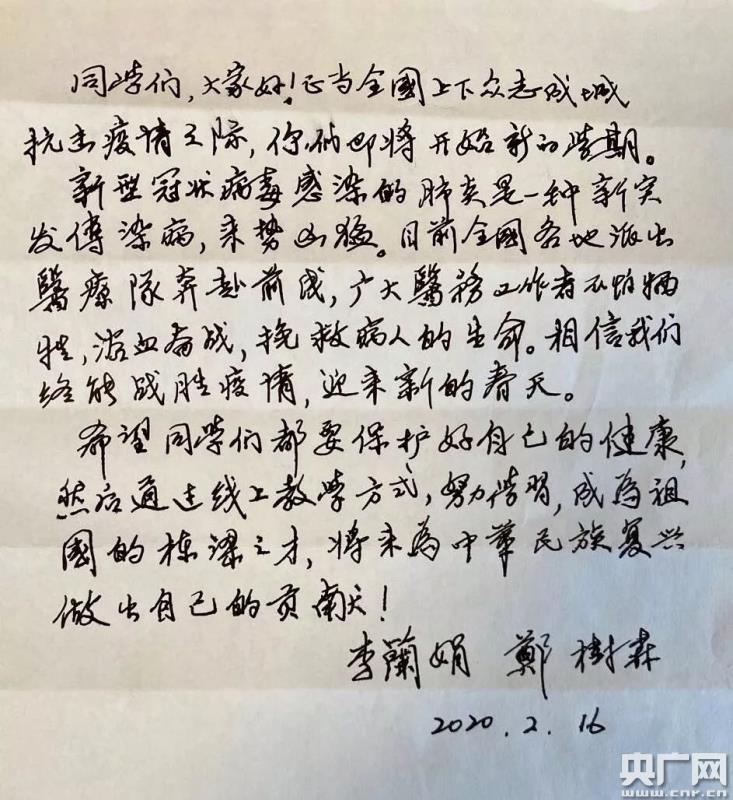 同学们，大家好！正当全國上下众志成城
抗击疫情之际，你们即将开始新的学期。
新型冠状病毒感染的肺炎是一种新突
发傳染病，来势凶猛。目前全國各地派出
醫療隊奔赴前线，广大醫務工作者不怕牺
牲，浴血奋战，挽救病人的生命。相信我们
终能战胜疫情，迎来新的春天。
希望同学们都要保护好自己的健康，
然后通过线上教学方式，努力学習，成為祖
國的栋梁之才，将来為中華民族复兴
做出自己的贡献！
李蘭娟 鄭樹森
2020.2.16
央广网
www.cnr.cn